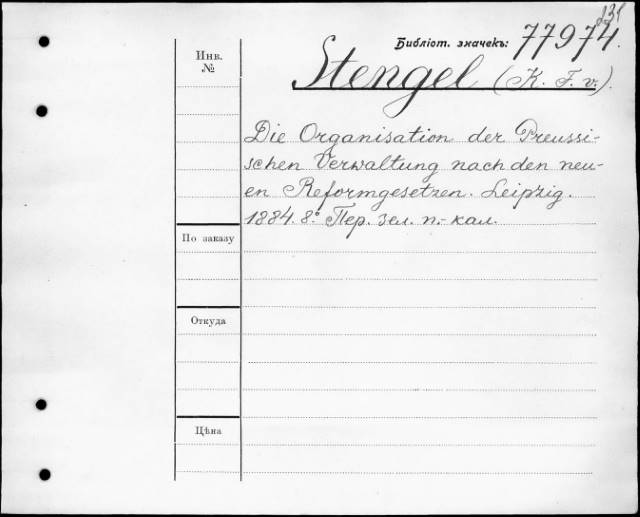 131
Инв.
№
Библіот. значекъ: 77974.
Stengel (K. F. v.).
Die Organisation der Preussi-
schen Verwaltung nach den neu-
en Reformgesetzen. Leipzig.
1884. 8.° Пер. зел. п.-кал.
По заказу
Откуда
Цѣна